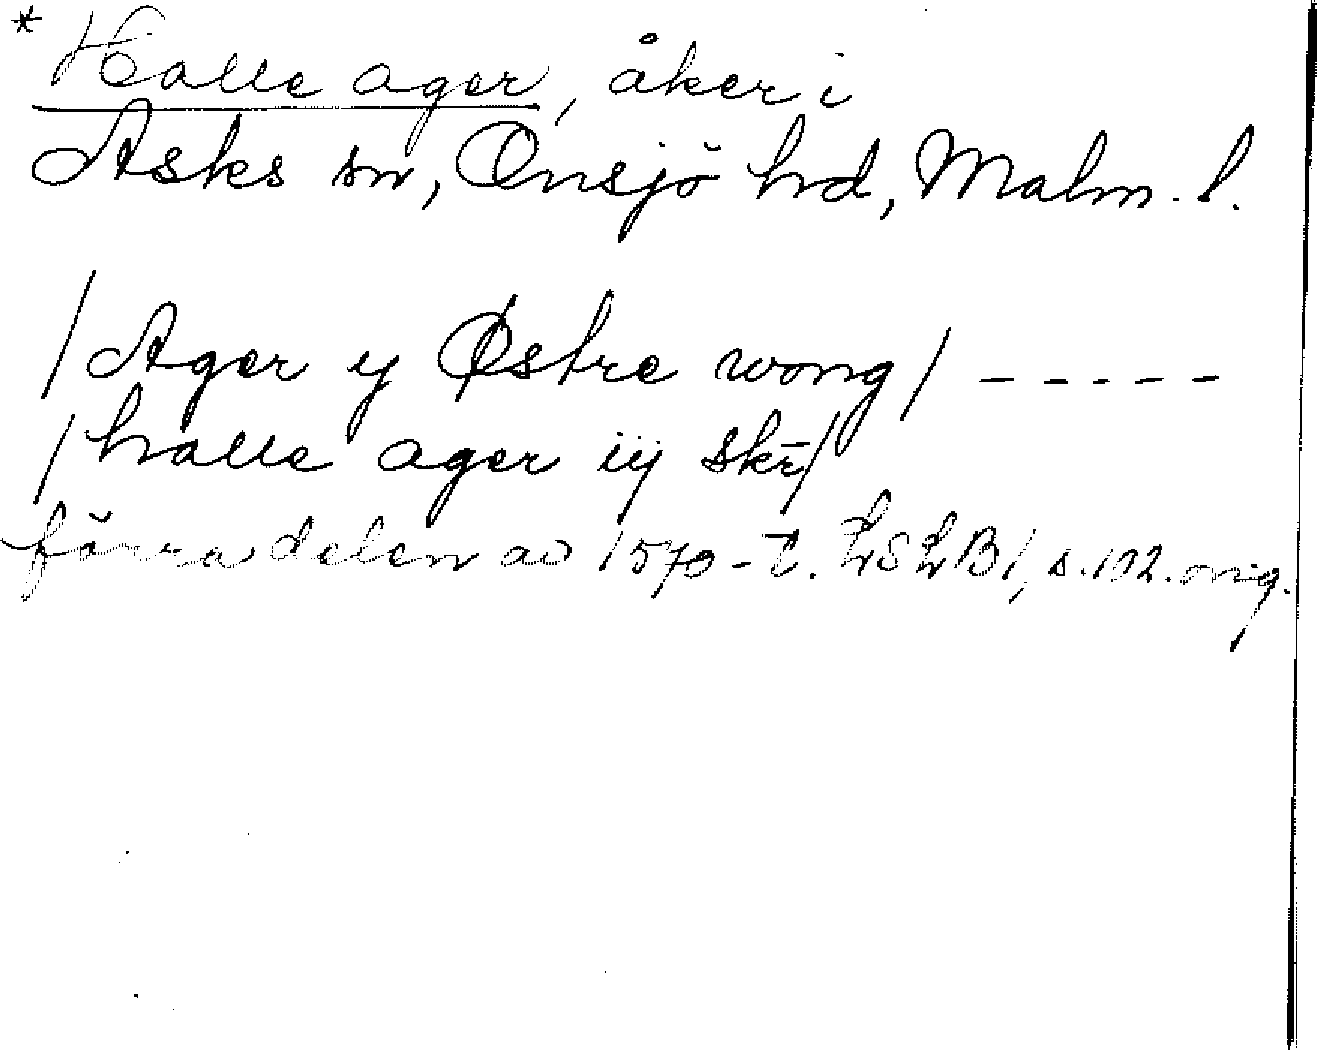 * Halle ager, åker i
Asks sn, Onsjö hrd, Malm. l.
/Ager y Østre wong/ -----
/halle ager iij skr̄/
förra delen av 1570-t. LSLB1, s.102. orig.